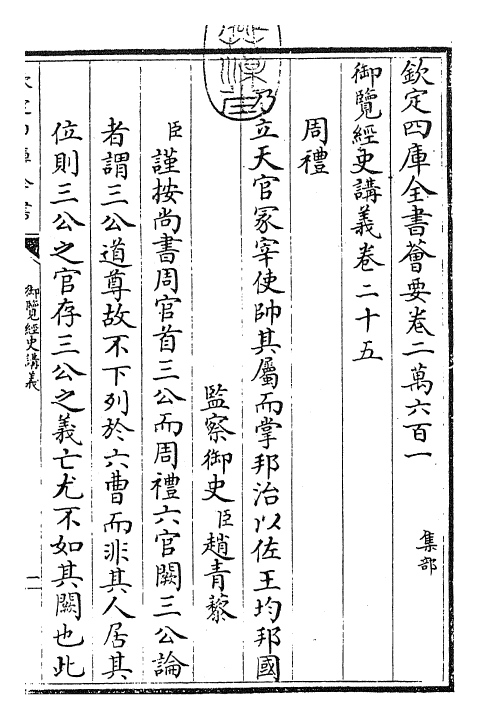 欽定四庫全書薈要卷二萬六百一
集部
御覽經史講義卷二十五
周禮
乃立天官冢宰使帥其屬而掌邦治以佐王均邦國
監察御史臣趙青藜
臣謹按尚書周官首三公而周禮六官闕三公論
者謂三公道尊故不下列於六曹而非其人居其
位則三公之官存三公之義亡尤不如其闕也此
御覽經史講義